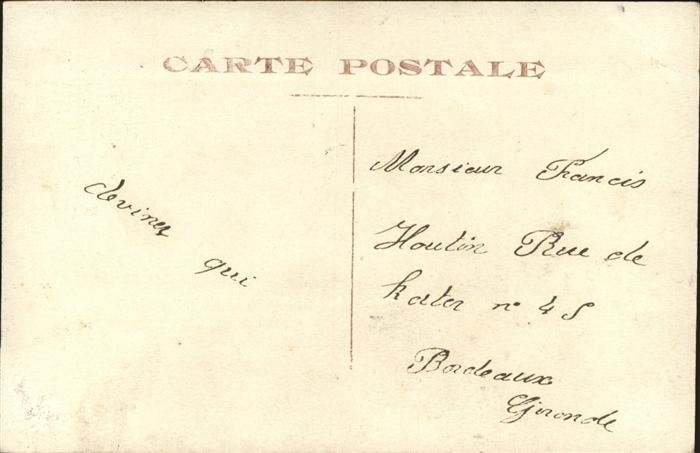 CARTE POSTALE
devinez
qui
Monsieur Francis
Houtin Rue de
Kater n° 45
Bordeaux
Gironde